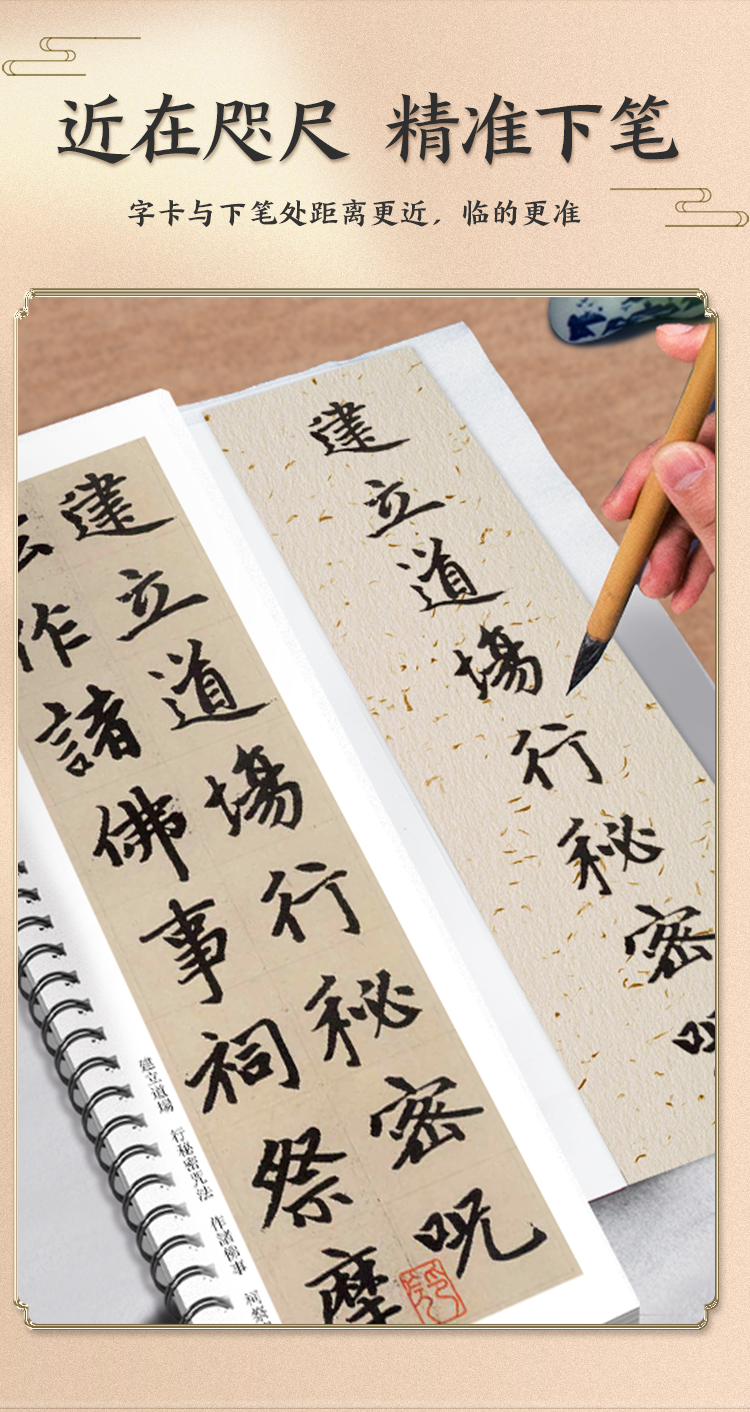 近在咫尺 精准下笔
字卡与下笔处距离更近，临的更准
建立道場行秘密
建立道場行秘密呪
作諸佛事祠祭摩
建立道場 行秘密咒法 作諸佛事 祠祭